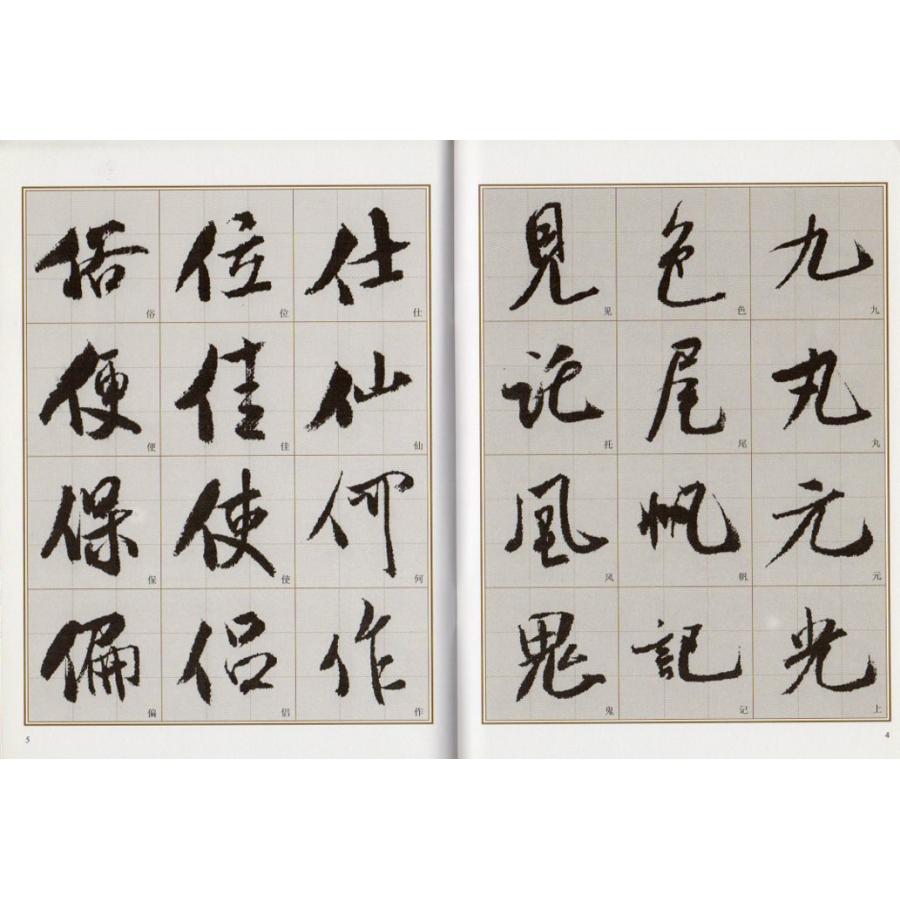 九丸元光
九丸元上
色尾帆記
色尾帆记
見託風鬼
见托风鬼
4
仕仙何作
仕仙何作
位佳使侣
位佳使侣
俗便保偏
俗便保偏
5